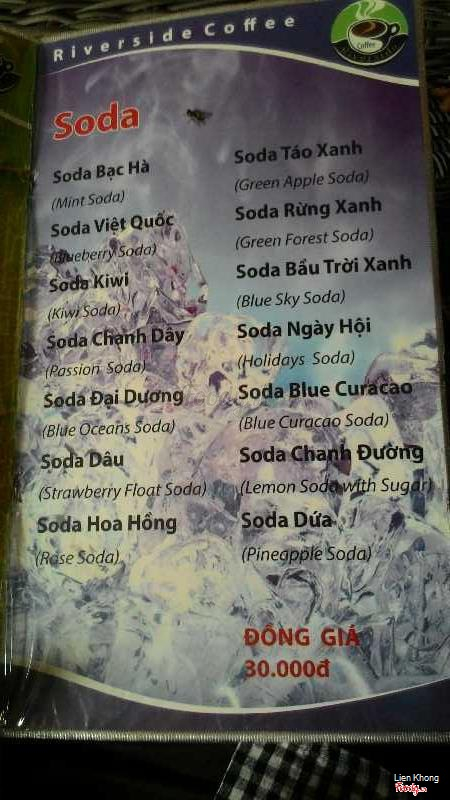 Riverside Coffee
Coffee
Soda
Soda Bạc Hà
(Mint Soda)
Soda Việt Quốc
(Blueberry Soda)
Soda Kiwi
(Kiwi Soda)
Soda Chanh Dây
(Passion Soda)
Soda Đại Dương
(Blue Oceans Soda)
Soda Dâu
(Strawberry Float Soda)
Soda Hoa Hồng
(Rose Soda)
Soda Táo Xanh
(Green Apple Soda)
Soda Rừng Xanh
(Green Forest Soda)
Soda Bầu Trời Xanh
(Blue Sky Soda)
Soda Ngày Hội
(Holidays Soda)
Soda Blue Curacao
(Blue Curacao Soda)
Soda Chanh Đường
(Lemon Soda with Sugar)
Soda Dứa
(Pineapple Soda)
ĐỒNG GIÁ
30.000đ
Lien Khong
Foody.vn